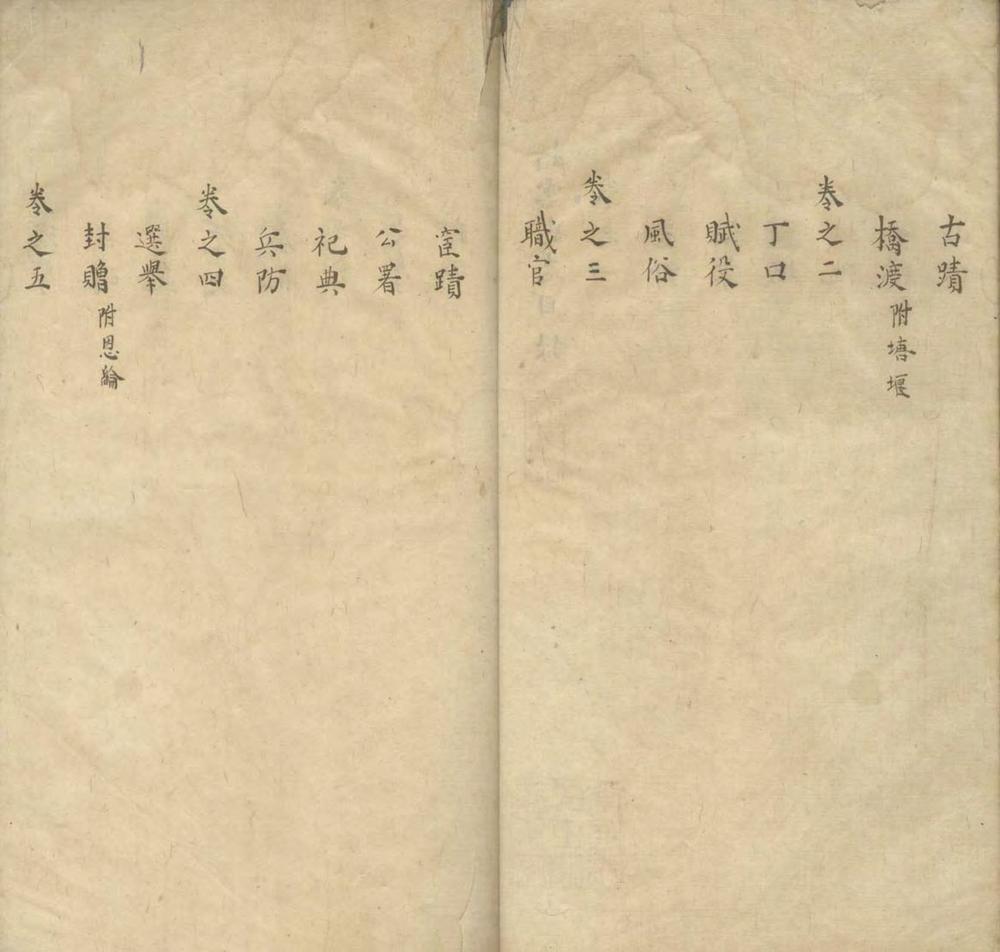 古蹟
橋渡 附塘堰
卷之二
丁口
賦役
風俗
卷之三
職官
宦蹟
公署
祀典
兵防
卷之四
選舉
封贈 附恩綸
卷之五